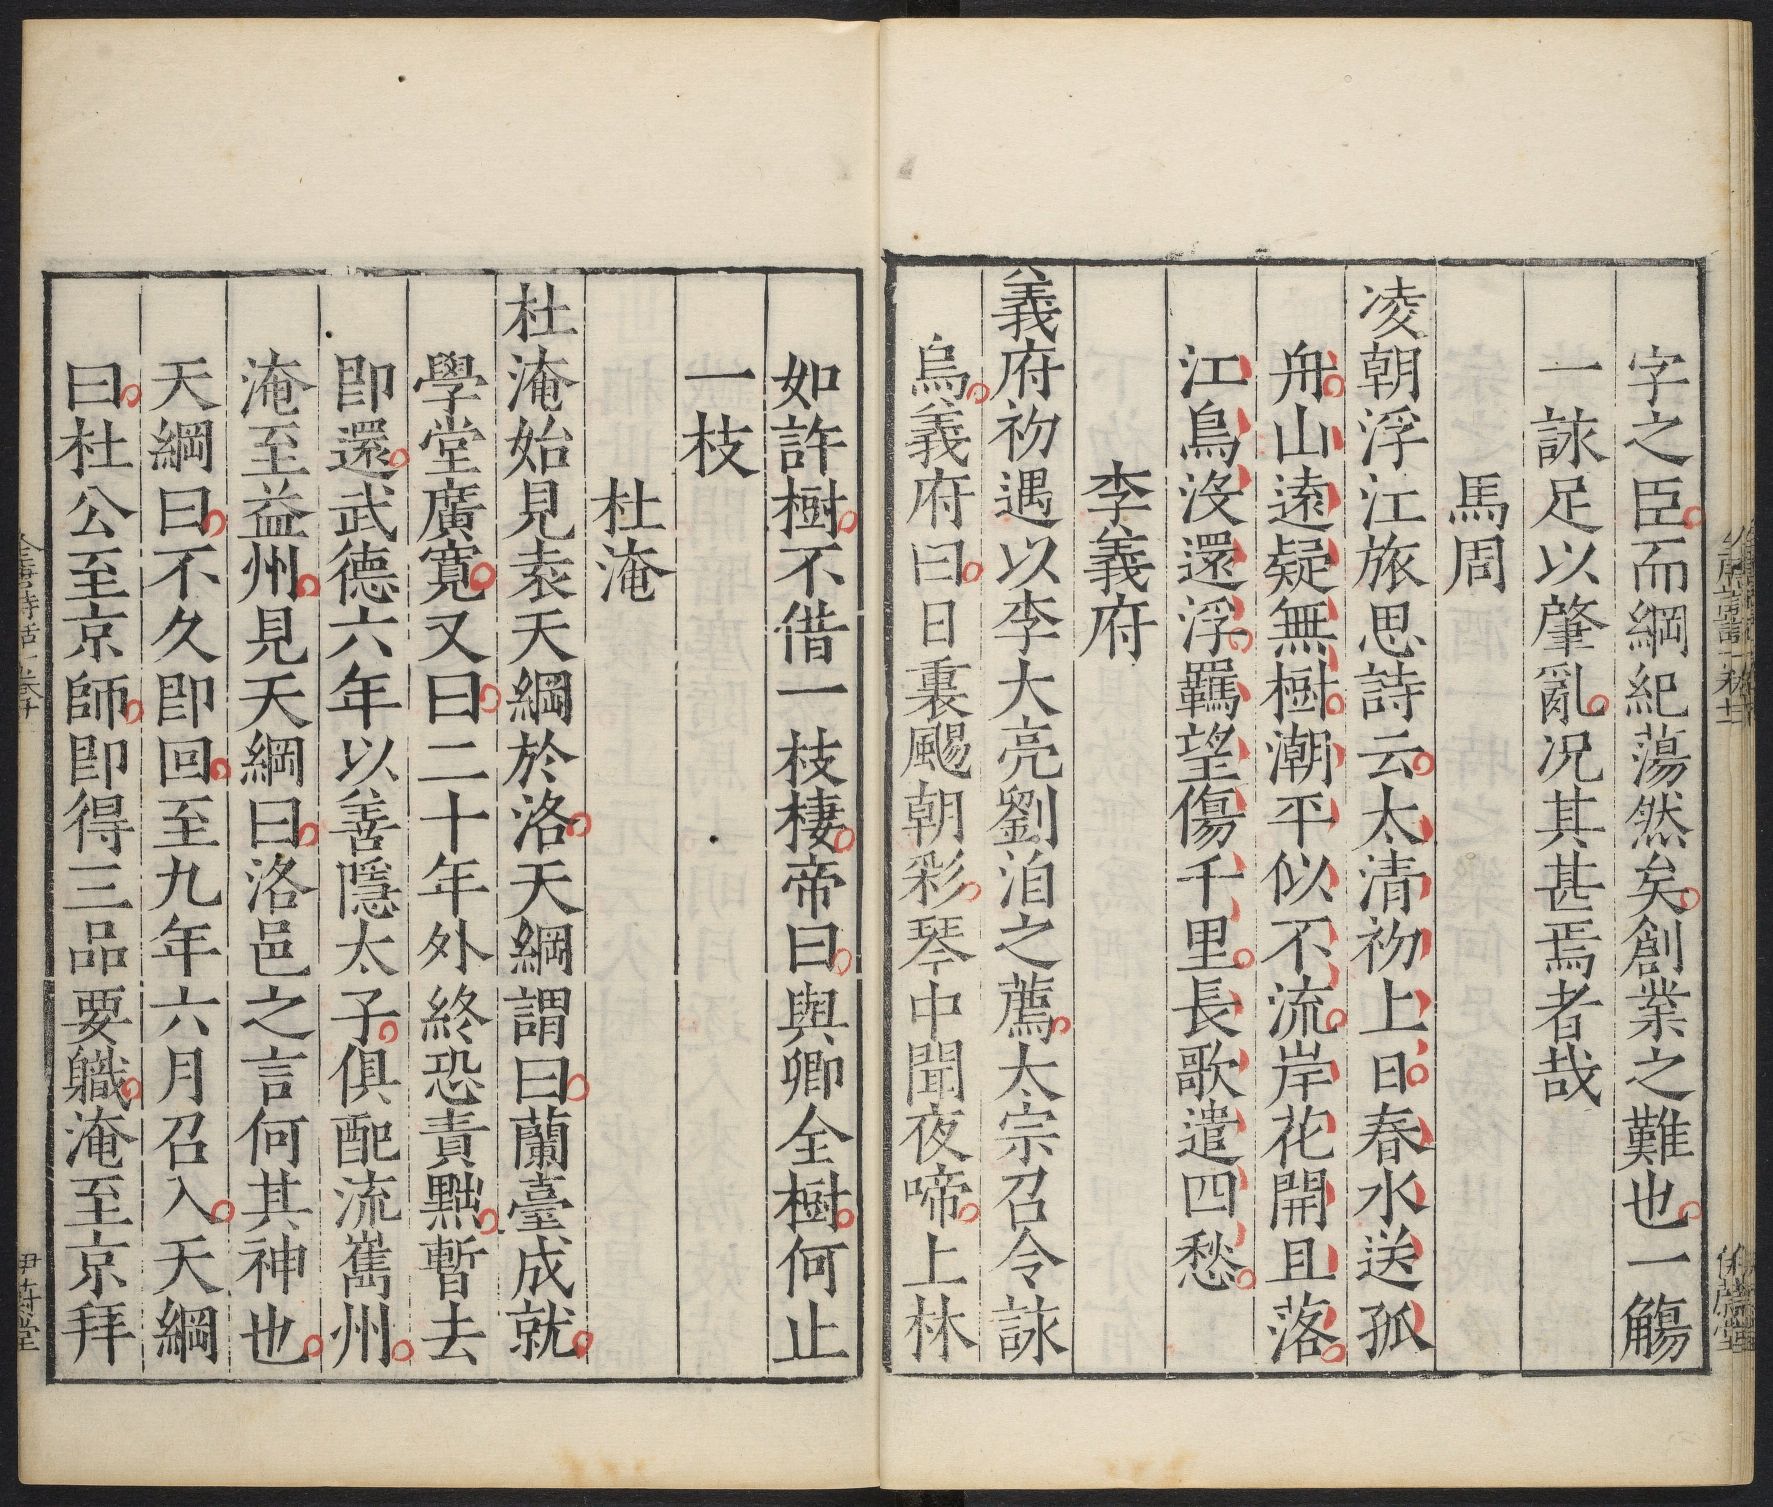 字之臣而綱紀蕩然矣創業之難也一觴
一詠足以肇亂况其甚焉者哉
馬周
凌朝浮江旅思詩云太清初上日春水送孤
舟山遠疑無樹潮平似不流岸花開且落
江鳥没還浮羈望傷千里長歌遣四愁
李義府
義府初遇以李大亮劉洎之薦太宗召令詠
烏義府曰日裏颺朝彩琴中聞夜啼上林
如許樹不借一枝棲帝曰與卿全樹何止
一枝
杜淹
杜淹始見袁天綱於洛天綱謂曰蘭臺成就
學堂廣寛又曰二十年外終恐責黜暫去
即還武德六年以善隱太子俱配流嶲州
淹至益州見天綱曰洛邑之言何其神也
天綱曰不久即回至九年六月召入天綱
曰杜公至京師即得三品要職淹至京拜